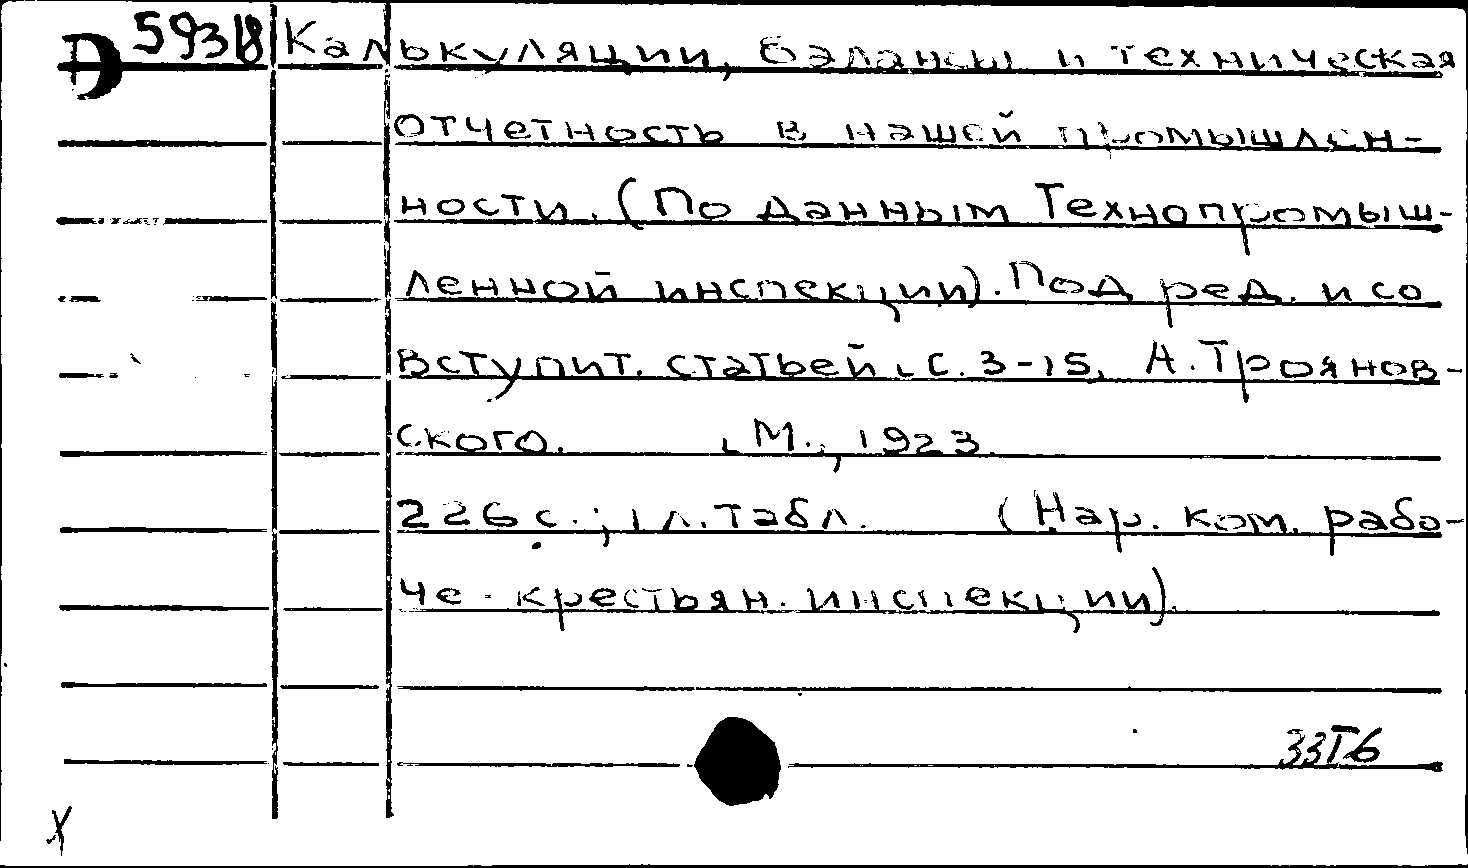 D 59318 Калькуляции, балансы и техническая
отчетность в нашей промышлен-
ности. (По данным Технопромыш-
ленной инспекции). Под ред. и со
вступит. статьей, с. 3-15, А. Троянов-
ского. М., 1923.
226 с.; 1 л. табл. (Нар. ком. рабо-
че-крестьян. инспекции).
33Т6